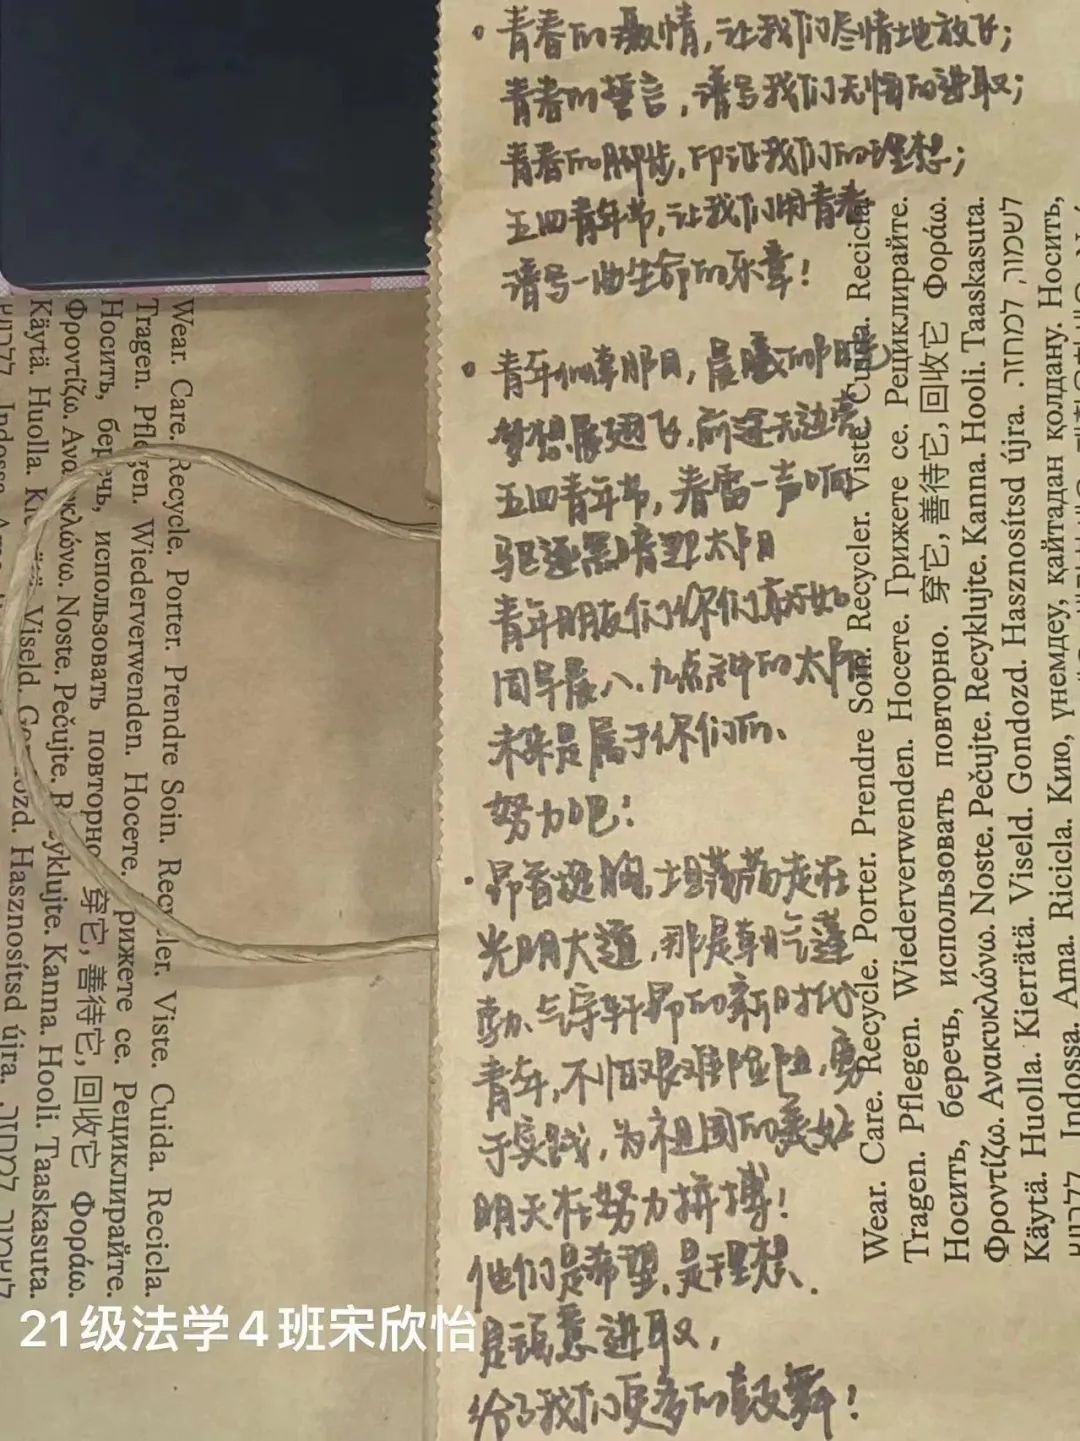 青春的激情,让我们尽情地放飞;
青春的誓言,谱写我们无悔的进取;
青春的脚步,印证我们的理想;
五四青年节,让我们用青春
谱写一曲生命的乐章!
青年似骄阳,晨曦的阳光
梦想展翅飞,前途无边亮
五四青年节,春雷一声响
驱逐黑暗迎太阳
青年朋友们你们就好如
同早晨八、九点钟的太阳
未来是属于你们的、
努力吧!
昂首挺胸,坦荡荡走在
光明大道,那是朝气蓬
勃、气宇轩昂的新时代
青年,不怕艰难险阻,勇
于实践,为祖国的美好
明天在努力拼搏!
他们是希望,是理想、
是锐意进取,
给了我们更多的鼓舞!
Wear. Care. Recycle. Porter. Prendre Soin. Recycler. Viste. Cuida. Recicla.
Tragen. Pflegen. Wiederverwenden. Носете. Грижете се. Рециклирайте.
Носить, беречь, использовать повторно. 穿它,善待它,回收它 Φοράω.
Φροντίζω. Ανακυκλώνω. Noste. Pečujte. Recyklujte. Kanna. Hooli. Taaskasuta.
Käytä. Huolla. Kierrätä. Viseld. Gondozd. Hasznosítsd újra. לשמור, למחזר.
Indossa. Ama. Ricicla. Кию, үнемдеу, қайтадан қолдану. Носить,
Wear. Care. Recycle. Porter. Prendre Soin. Recycler. Viste. Cuida. Recicla.
Tragen. Pflegen. Wiederverwenden. Носете. Грижете се. Рециклирайте.
Носить, беречь, использовать повторно. 穿它,善待它,回收它 Φοράω.
Φροντίζω. Ανακυκλώνω. Noste. Pečujte. Recyklujte. Kanna. Hooli. Taaskasuta.
Käytä. Huolla. Viseld. Gondozd. Hasznosítsd újra.
21级法学4班宋欣怡